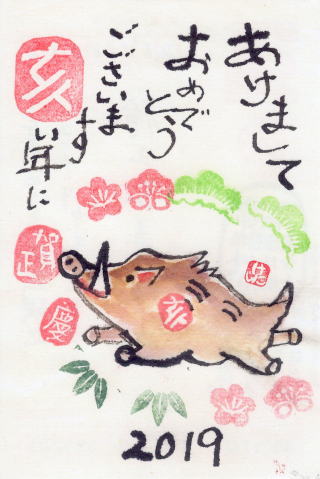 あけまして
おめでとう
ございま
す
亥
い年に
賀正
慶
亥
2019